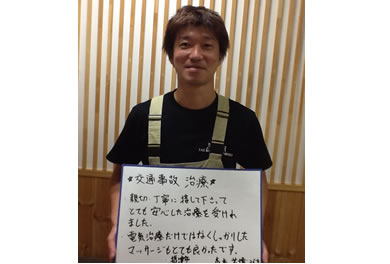 *交通事故 治療*
親切、丁寧に接して下さって
とても安心した治療を受けれ
ました。
電気治療だけではなくしっかりした
マッサージもとても良かったです。